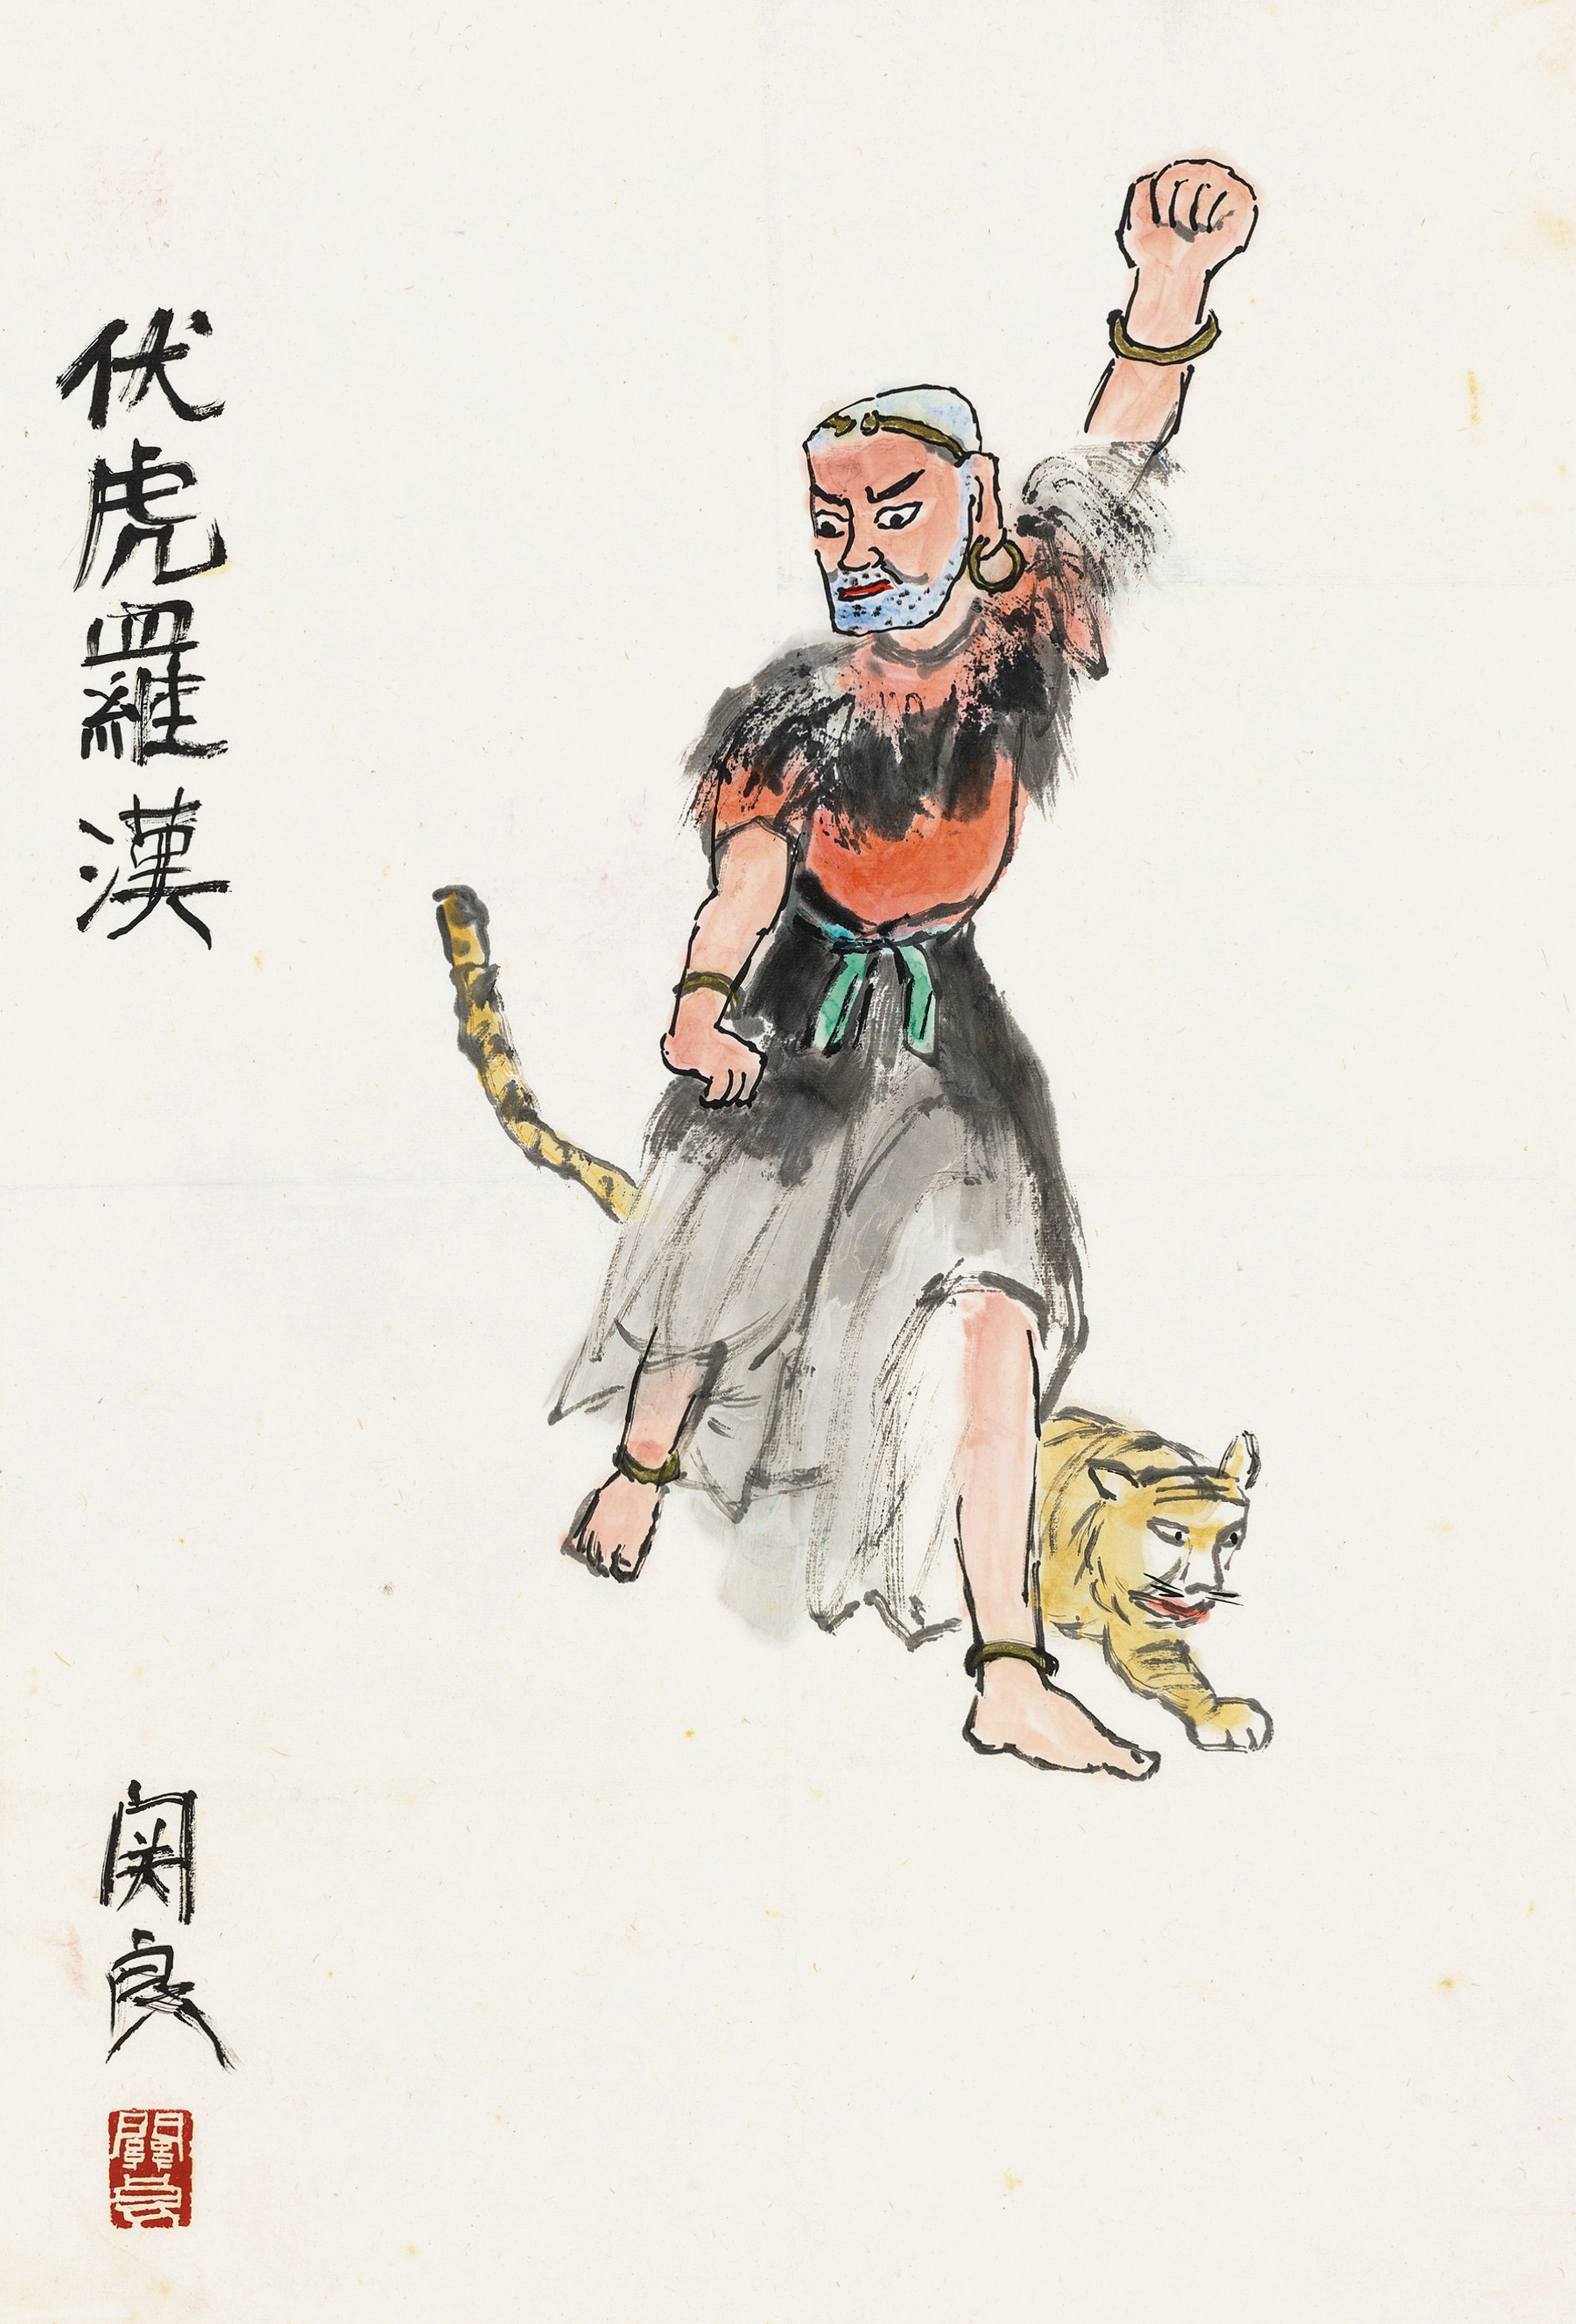 伏虎羅漢
関良
關良